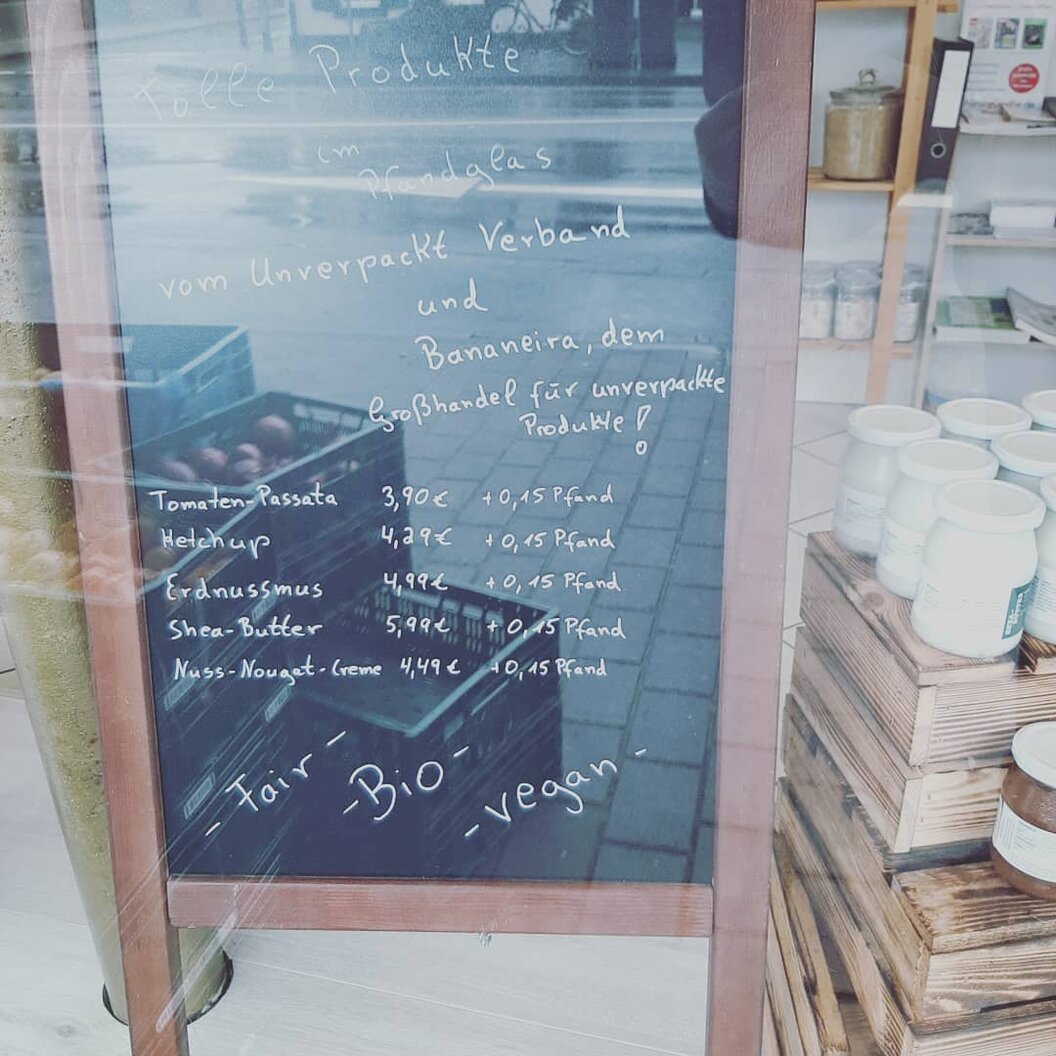 Tolle Produkte
im
Pfandglas
vom Unverpackt Verband
und
Bananeira, dem
Großhandel für unverpackte
Produkte!
Tomaten-Passata 3,90€ +0,15 Pfand
Ketchup 4,29€ +0,15 Pfand
Erdnussmus 4,99€ +0,15 Pfand
Shea-Butter 5,99€ +0,15 Pfand
Nuss-Nougat-Creme 4,49€ +0,15 Pfand
-Fair-
-Bio-
-vegan-